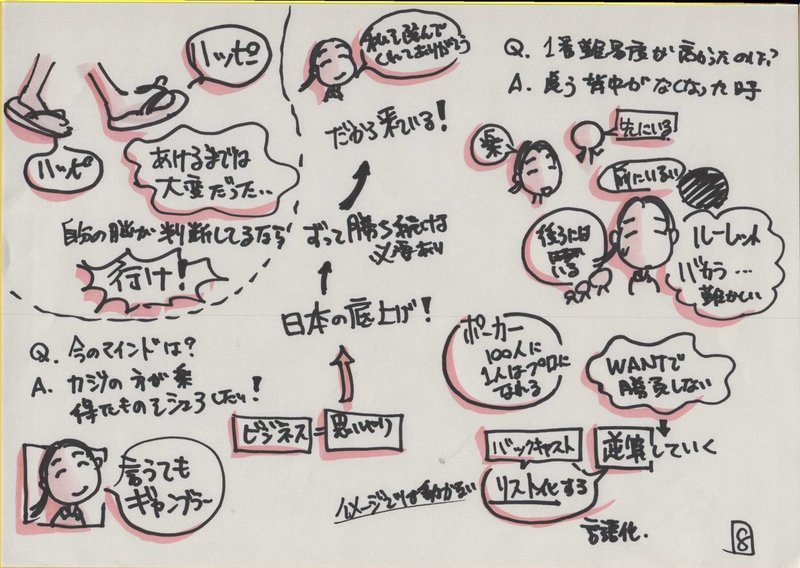 ハッピー
ハッピー
あけるまでは
大変だった…
自分の脳が判断してるなら
行け!
Q. 今のマインドは?
A. カジノの方が楽
得たものをシェアしたい!
言うても
ギャンブラー
私を選んで
くれてありがとう
だから来ている!
ずっと勝ち続ける
必要あり
日本の底上げ!
ビジネス=思いやり
Q. 1番難易度が高かったのは?
A. 追う背中がなくなった時
楽
先にいる
前にいない
後ろには
いる
ルーレット
バカラ…
難かしい
ポーカー
100人に
1人はプロに
なれる
WANTで
勝負しない
逆算していく
バックキャスト
リスト化する
イメージでは動かない
言語化.
8